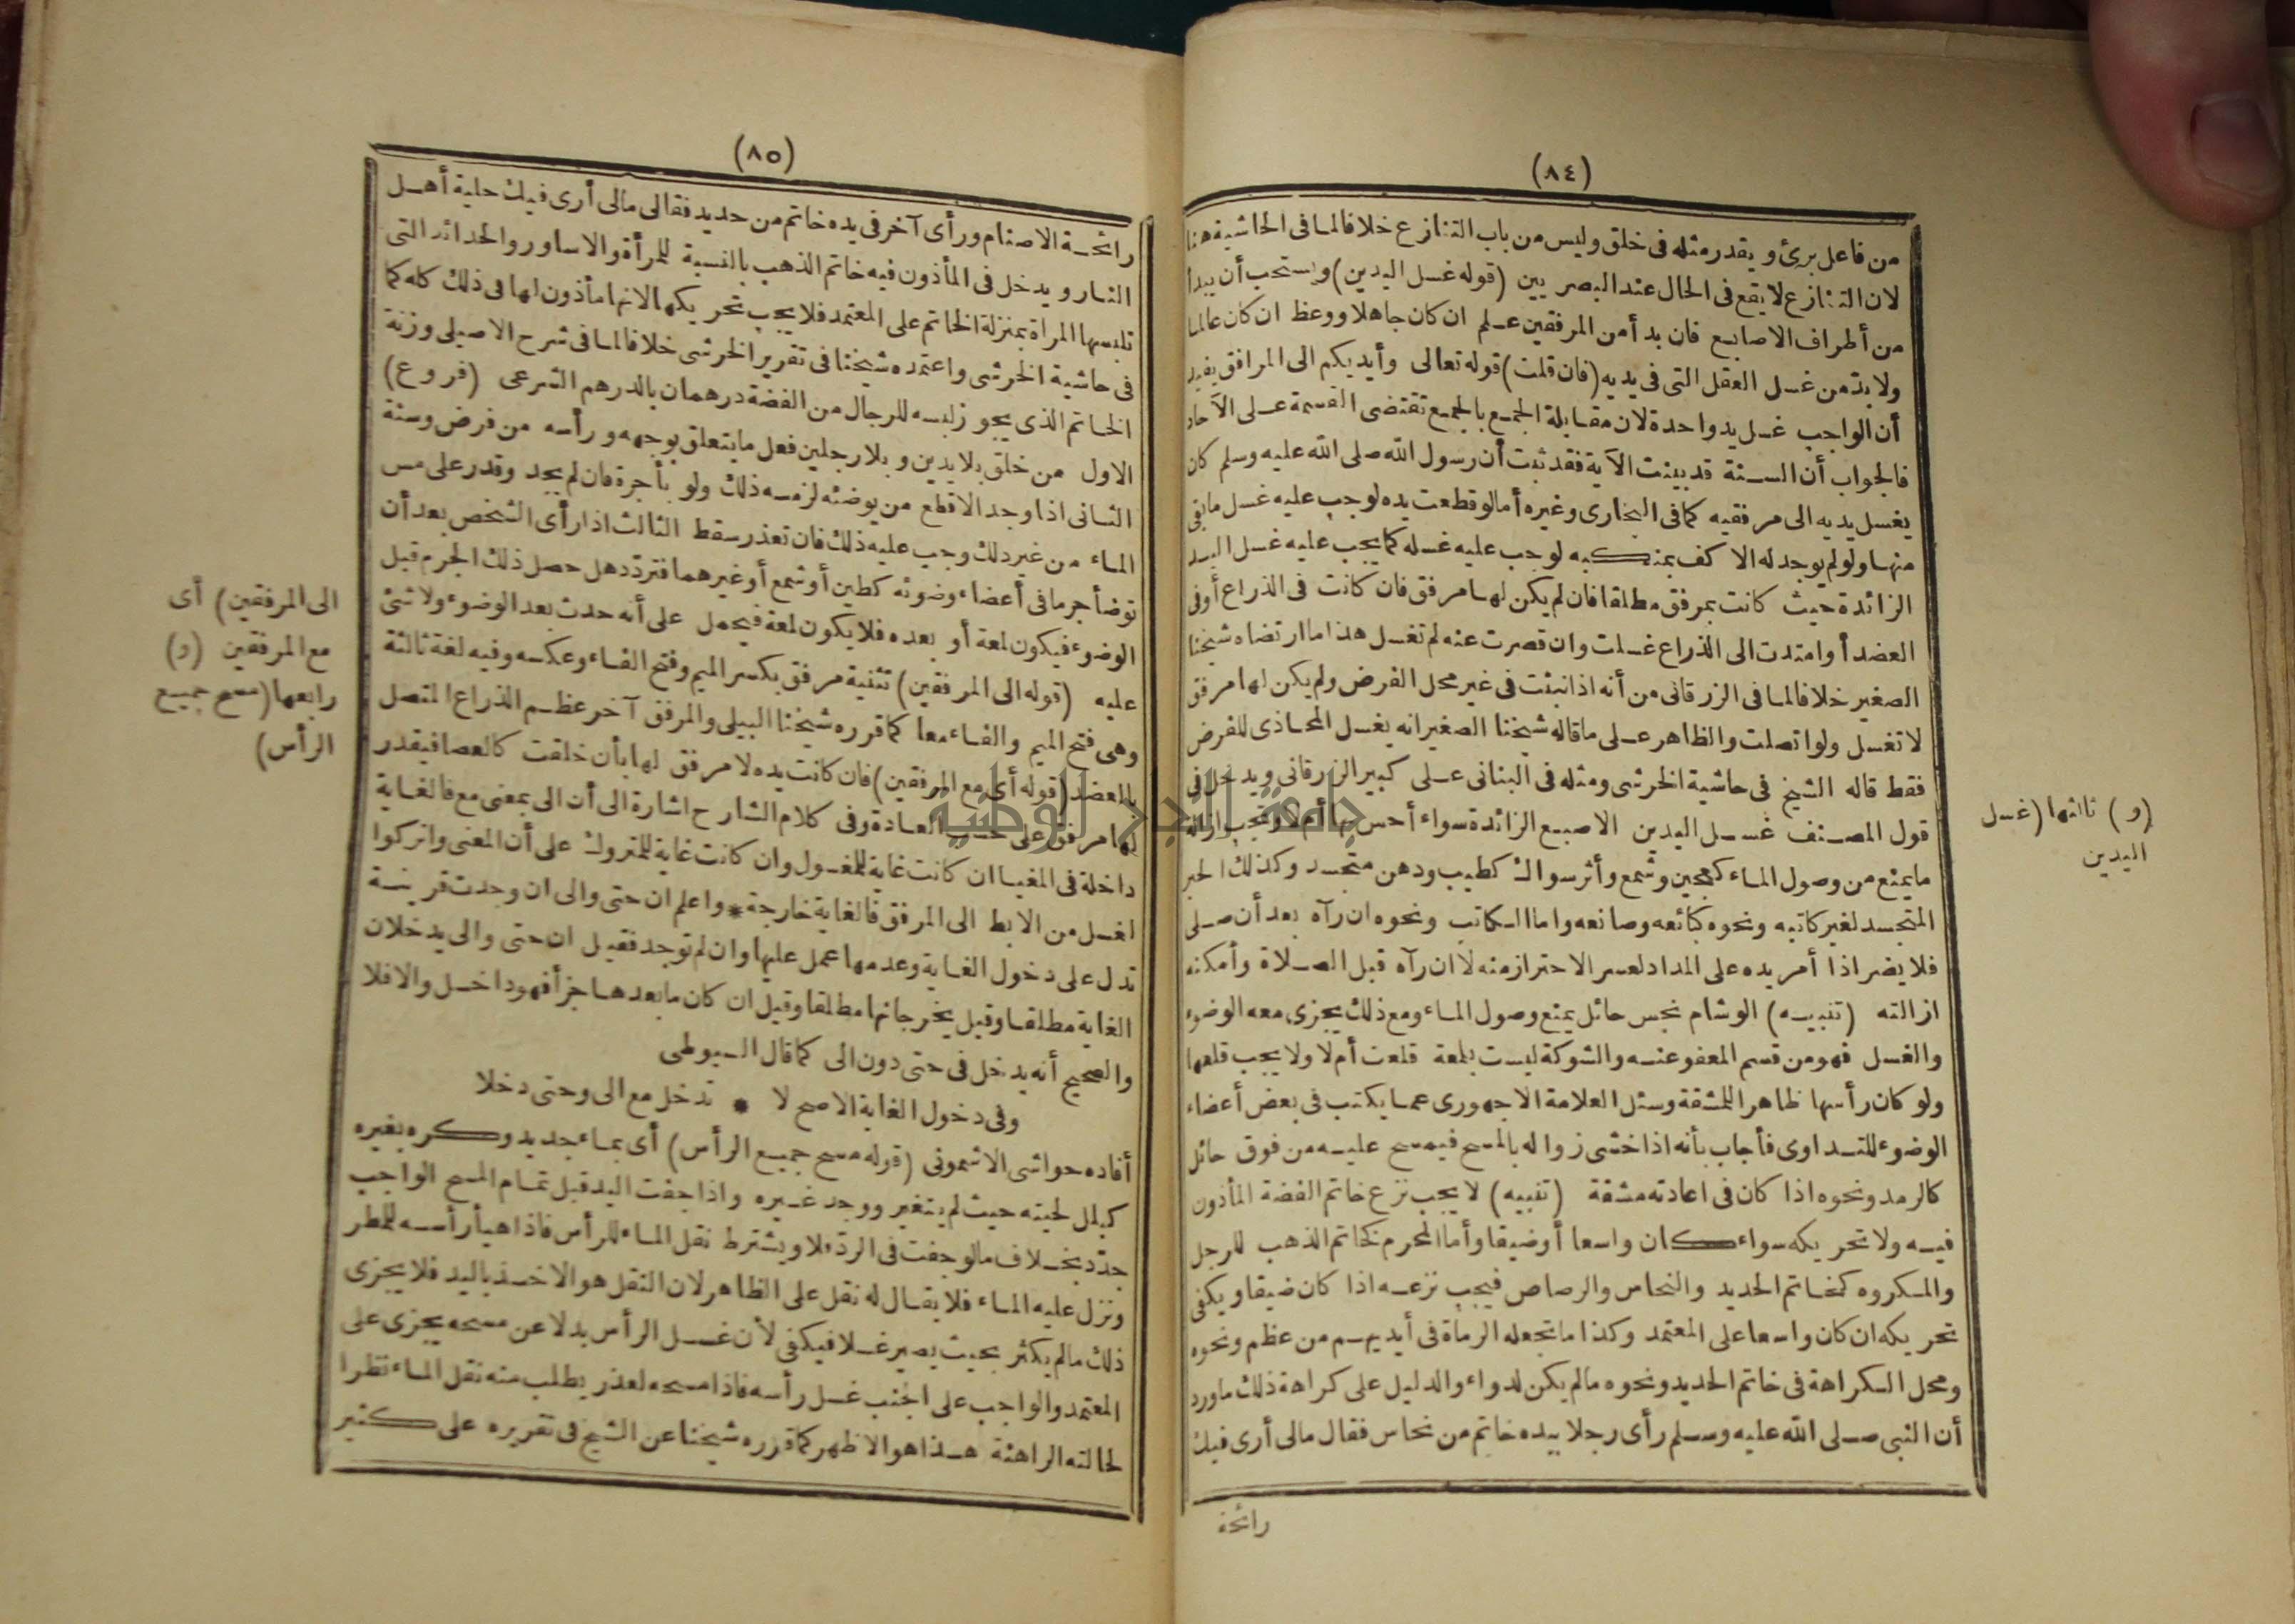 (٨٤)
من فاعل برئ ويقدر مثله فى خلق وليس من باب التنازع خلافا لما فى الحاشية هنا
لان التنازع لا يقع فى الحال عند البصريين (قوله غسل اليدين) ويستحب أن يبدأ
من أطراف الاصابع فان بدأ من المرفقين علم ان كان جاهلا ووعظ ان كان عالما
ولا بد من غسل العقل التى فى يديه (فان قلت) قوله تعالى وأيديكم الى المرافق يفيد
أن الواجب غسل يد واحدة لان مقابلة الجمع بالجمع تقتضى القسمة على الآحاد
فالجواب أن السنة قد بينت الآية فقد ثبت أن رسول الله صلى الله عليه وسلم كان
يغسل يديه الى مرفقيه كما فى البخارى وغيره أما لو قطعت يده لوجب عليه غسل ما بقى
منها ولو لم يوجد له الا كف بمنكبه لوجب عليه غسله كما يجب عليه غسل اليد
الزائدة حيث كانت بمرفق مطلقا فان لم يكن لها مرفق فان كانت فى الذراع أو فى
العضد أو امتدت الى الذراع غسلت وان قصرت عنه لم تغسل هذا ما ارتضاه شيخنا
الصغير خلافا لما فى الزرقانى من أنه اذا نبتت فى غير محل الفرض ولم يكن لها مرفق
لا تغسل ولو اتصلت والظاهر على ما قاله شيخنا الصغير انه يغسل المحاذى للفرض
فقط قاله الشيخ فى حاشية الخرشى ومثله فى البنانى على كبير الزرقانى ويدخل فى
قول المصنف غسل اليدين الاصبع الزائدة سواء أحس بها أم لا وتجب ازالة
ما يمنع من وصول الماء كعجين وشمع وأثر سواك كطيب ودهن متجسد وكذلك الحبر
المتجسد لغير كاتبه ونحوه كبائعه وصانعه واما الكاتب ونحوه ان رآه بعد أن صلى
فلا يضر اذا أمر يده على المداد لعسر الاحتراز منه لا ان رآه قبل الصلاة وأمكنه
ازالته (تنبيه) الوشام نجس حائل يمنع وصول الماء ومع ذلك يجزى معه الوضوء
والغسل فهو من قسم المعفو عنه والشوكة ليست بلمعة قلعت أم لا ولا يجب قلعها
ولو كان رأسها ظاهرا للمشقة وسئل العلامة الاجهورى عما يكتب فى بعض أعضاء
الوضوء للتداوى فأجاب بأنه اذا خشى زواله بالمسح فيمسح عليه من فوق حائل
كالرمد ونحوه اذا كان فى اعادته مشقة (تنبيه) لا يجب نزع خاتم الفضة المأذون
فيه ولا تحريكه سواء كان واسعا أو ضيقا وأما المحرم كخاتم الذهب للرجل
والمكروه كخاتم الحديد والنحاس والرصاص فيجب نزعه اذا كان ضيقا ويكفى
تحريكه ان كان واسعا على المعتمد وكذا ما تجعله الرماة فى أيديهم من عظم ونحوه
ومحل الكراهة فى خاتم الحديد ونحوه ما لم يكن لدواء والدليل على كراهة ذلك ما ورد
أن النبى صلى الله عليه وسلم رأى رجلا بيده خاتم من نحاس فقال مالى أرى فيك
رائحة
(و) ثالثها (غسل
اليدين
(٨٥)
رائحة الاصنام ورأى آخر فى يده خاتم من حديد فقال مالى أرى فيك حلية أهل
النار ويدخل فى المأذون فيه خاتم الذهب بالنسبة للمرأة والاساور والحدائد التى
تلبسها المرأة بمنزلة الخاتم على المعتمد فلا يجب تحريكها لانها مأذون لها فى ذلك كله كما
فى حاشية الخرشى واعتمده شيخنا فى تقرير الخرشى خلافا لما فى شرح الاصيلى وزنة
الخاتم الذى يجوز لبسه للرجال من الفضة درهمان بالدرهم الشرعى (فروع)
الاول من خلق بلا يدين وبلا رجلين فعل ما يتعلق بوجهه ورأسه من فرض وسنة
الثانى اذا وجد الاقطع من يوضئه لزمه ذلك ولو بأجرة فان لم يجد وقدر على مس
الماء من غير دلك وجب عليه ذلك فان تعذر سقط الثالث اذا رأى الشخص بعد أن
توضأ جرما فى أعضاء وضوئه كطين أو شمع أو غيرهما فتردد هل حصل ذلك الجرم قبل
الوضوء فيكون لمعة أو بعده فلا يكون لمعة فيحمل على أنه حدث بعد الوضوء ولا شئ
عليه (قوله الى المرفقين) تثنية مرفق بكسر الميم وفتح الفاء وعكسه وفيه لغة ثالثة
وهى فتح الميم والفاء معا كما قرره شيخنا البيلى والمرفق آخر عظم الذراع المتصل
بالعضد (قوله أى مع المرفقين) فان كانت يده لا مرفق لها بأن خلقت كالعصا فيقدر
لها مرفق على حسب العادة وفى كلام الشارح اشارة الى أن الى بمعنى مع فالغاية
داخلة فى المغيا ان كانت غاية للمغسول وان كانت غاية للمتروك على أن المعنى واتركوا
اغسل من الابط الى المرفق فالغاية خارجة * واعلم ان حتى والى ان وجدت قرينة
تدل على دخول الغاية وعدمها عمل عليها وان لم توجد فقيل ان حتى والى يدخلان
الغاية مطلقا وقيل يخرجانها مطلقا وقيل ان كان ما بعدها جزأ فهو داخل والا فلا
والصحيح أنه يدخل فى حتى دون الى كما قال السيوطى
وفى دخول الغاية الاصح لا * تدخل مع الى وحتى دخلا
أفاده حواشى الاشمونى (قوله مسح جميع الرأس) أى بماء جديد وكره بغيره
كبلل لحيته حيث لم يتغير ووجد غيره واذا جفت اليد قبل تمام المسح الواجب
جدد بخلاف ما لو جفت فى الرد فلا ويشترط نقل الماء للرأس فاذا هيأ رأسه للمطر
ونزل عليه الماء فلا يقال له نقل على الظاهر لان النقل هو الاخذ باليد فلا يجزى
ذلك ما لم يكثر بحيث يصير غسلا فيكفى لأن غسل الرأس بدلا عن مسحه يجزى على
المعتمد والواجب على الجنب غسل رأسه فاذا مسحه لعذر يطلب منه نقل الماء نظرا
لحالته الراهنة هذا هو الاظهر كما قرره شيخنا عن الشيخ فى تقريره على كثير
الى المرفقين) أى
مع المرفقين (و)
رابعها (مسح جميع
الرأس)
جامعة النجاح الوطنية